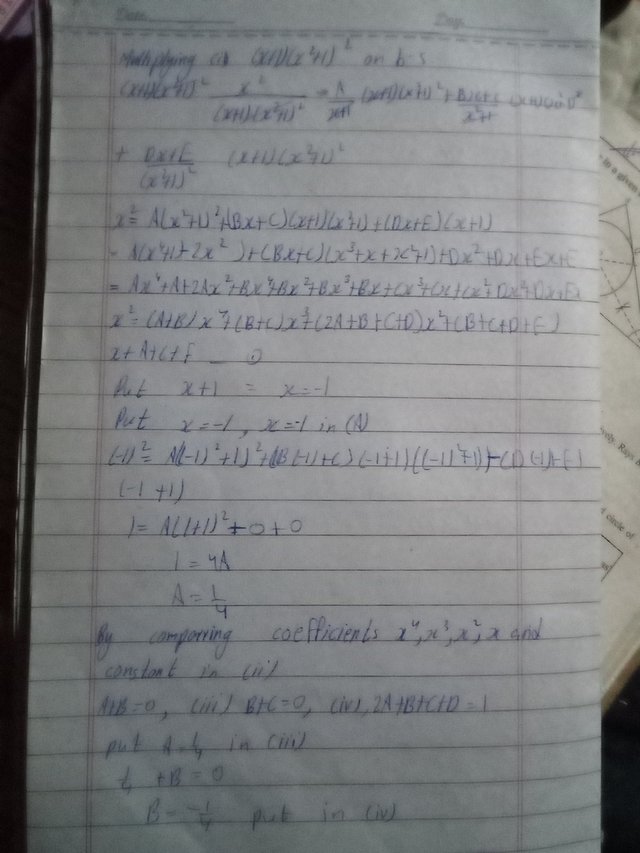 Date
Day
Multiplying (i) (x+1)(x²+1)² on b.s
(x+1)(x²+1)² x²/(x+1)(x²+1)² = A/x+1 (x+1)(x²+1)² + Bx+C/x²+1 (x+1)(x²+1)²
+ Dx+E/(x²+1)² (x+1)(x²+1)²
x² = A(x²+1)²+(Bx+C)(x+1)(x²+1)+(Dx+E)(x+1)
= A(x⁴+1+2x²)+(Bx+C)(x³+x+x²+1)+Dx²+Dx+Ex+E
= Ax⁴+A+2Ax²+Bx⁴+Bx²+Bx³+Bx+Cx³+Cx+Cx²+Dx²+Dx+Ex
x² = (A+B)x⁴+(B+C)x³+(2A+B+C+D)x²+(B+C+D+E)
x+A+C+E
Put x+1 = x=-1
Put x=-1, x=-1 in (A)
(-1)² = A((-1)²+1)²+(B(-1)+C)(-1+1)((-1)²+1)+(D(-1)+E)
(-1+1)
1 = A(1+1)²+0+0
1 = 4A
A = 1/4
By comparring coefficients x⁴, x³, x², x and
constant in (ii)
A+B=0, (iii) B+C=0, (iv), 2A+B+C+D=1
put A=1/4 in (iii)
1/4 +B = 0
B = -1/4 put in (iv)